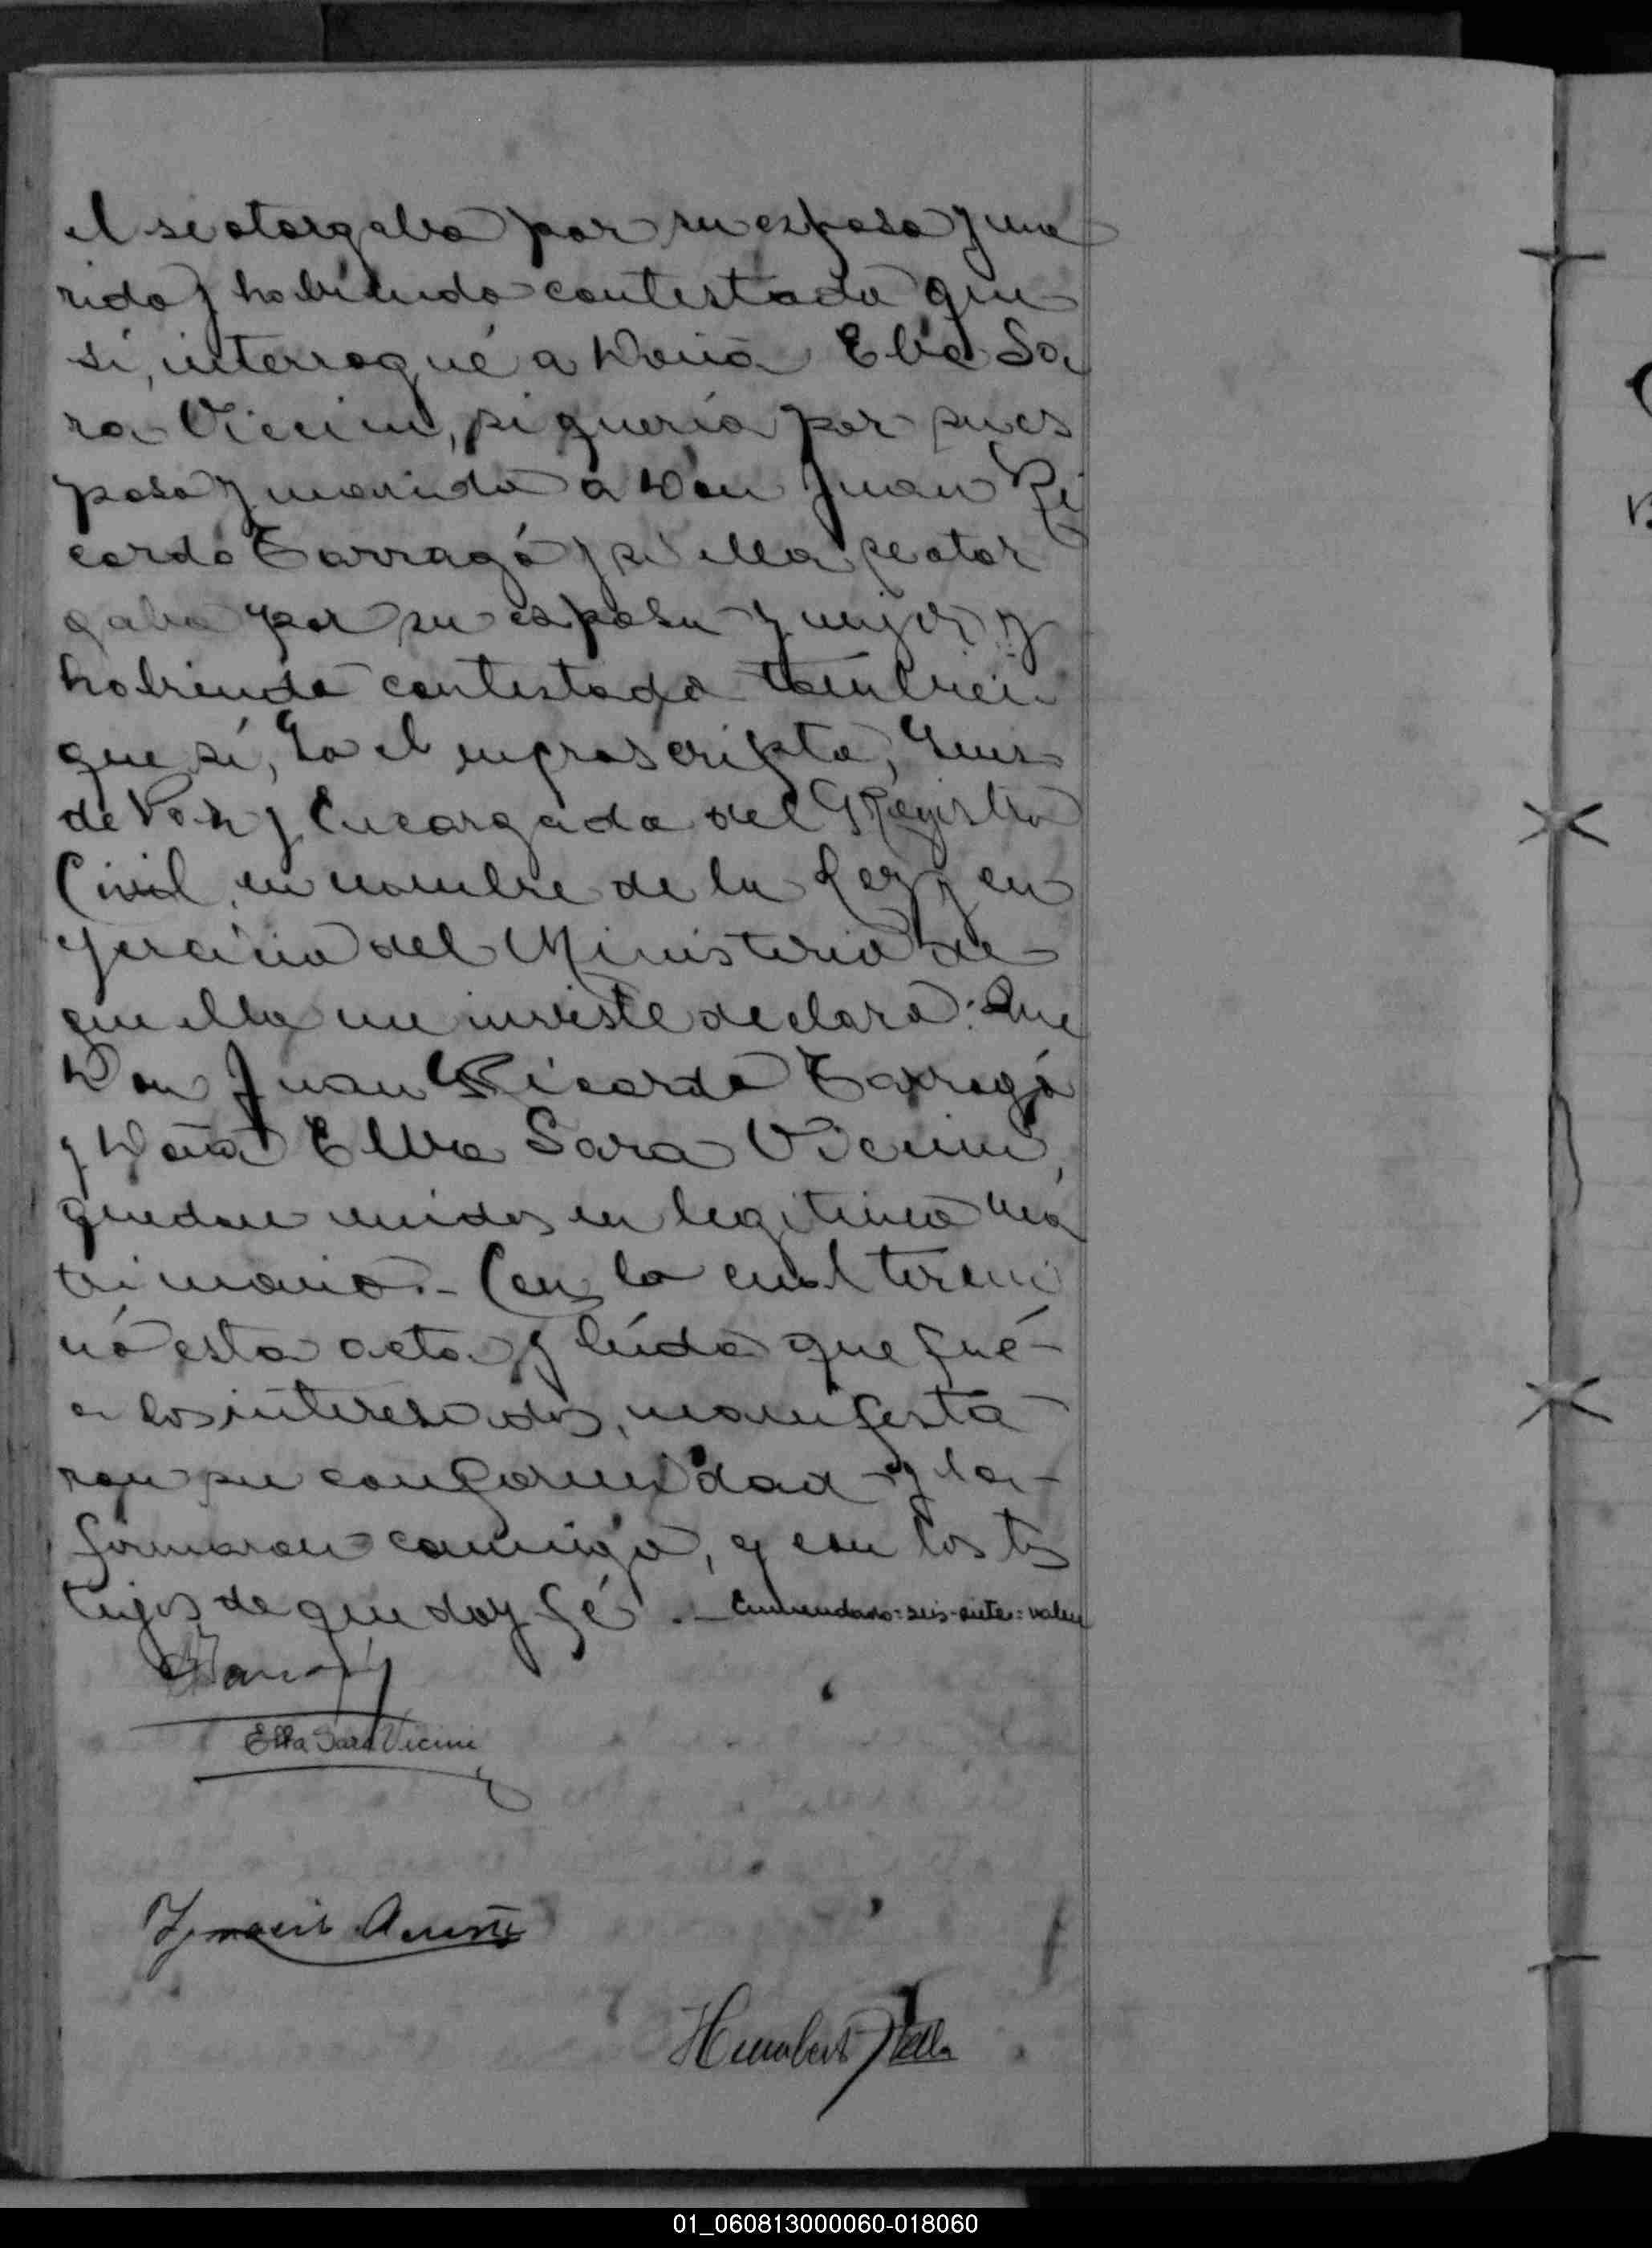 el se otorgaba por su esposo y ma
rido y habiendo contestado que
sí, interrogué a Doña Elba Sa
ra Vicini, si quería por su es
poso y marido a Don Juan Ri
cardo Tarragó y si ella se otor
gaba por su esposa y mujer y
habiendo contestado también
que sí, Yo el infrascripto, Juez
de Paz y Encargado del Registro
Civil, en nombre de la Ley y en
ejercicio del Ministerio de
que ella me inviste declaro: Que
Don Juan Ricardo Tarragó
y Doña Elba Sara Vicini,
quedan unidos en legítimo ma
trimonio.- Con lo cual termi
nó esta acta y leída que fué-
a los interesados, manifesta
ron su conformidad y la-
firmaron conmigo, y con los tes
tigos de que doy fé.- Enmendado=seis-siete=valen
Elba Sara Vicini
Ignacio
Humberto
01_060813000060-018060